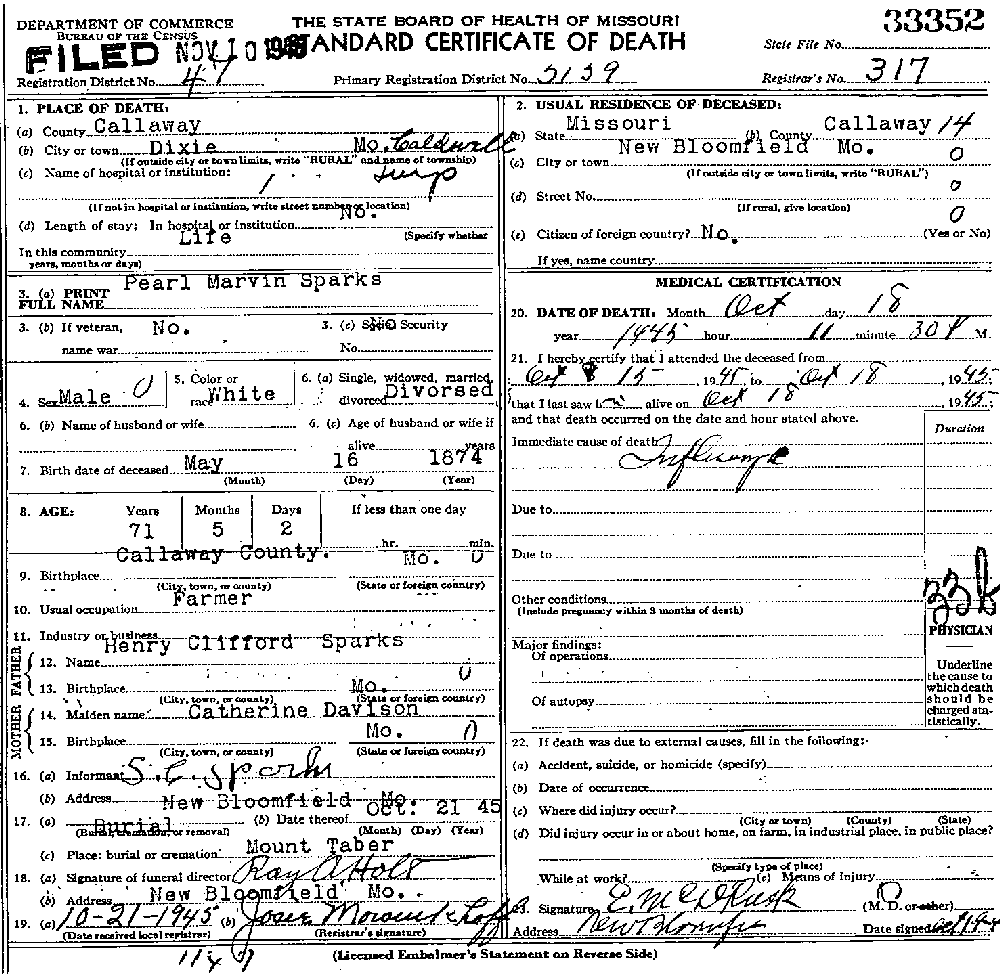 DEPARTMENT OF COMMERCE
BUREAU OF THE CENSUS
THE STATE BOARD OF HEALTH OF MISSOURI
STANDARD CERTIFICATE OF DEATH
33352
State File No.
FILED NOV 10 1945
Registration District No. 47
Primary Registration District No. 5139
Registrar's No. 317
1. PLACE OF DEATH:
(a) County Callaway
(b) City or town Dixie Mo. Caldwell
(If outside city or town limits, write "RURAL" and name of township)
(c) Name of hospital or institution: twsp
1
(If not in hospital or institution, write street number or location)
(d) Length of stay: In hospital or institution No.
(Specify whether
In this community Life
years, months or days)
3. (a) PRINT FULL NAME Pearl Marvin Sparks
3. (b) If veteran, name war No.
3. (c) Social Security No. No
4. Sex Male 0
5. Color or race White
6. (a) Single, widowed, married, divorced Divorsed
6. (b) Name of husband or wife
6. (c) Age of husband or wife if alive years
7. Birth date of deceased May 16 1874
(Month) (Day) (Year)
8. AGE: Years Months Days If less than one day
71 5 2 hr. min.
9. Birthplace Callaway County. Mo. 0
(City, town, or county) (State or foreign country)
10. Usual occupation Farmer
11. Industry or business
FATHER
12. Name Henry Clifford Sparks
13. Birthplace Mo. 0
(City, town, or county) (State or foreign country)
MOTHER
14. Maiden name Catherine Davison
15. Birthplace Mo. 0
(City, town, or county) (State or foreign country)
16. (a) Informant S. C. Sparks
(b) Address New Bloomfield Mo.
17. (a) Burial (b) Date thereof Oct: 21 45
(Burial, cremation, or removal) (Month) (Day) (Year)
(c) Place: burial or cremation Mount Taber
18. (a) Signature of funeral director Ray A Holt
(b) Address New Bloomfield Mo.
19. (a) 10-21-1945 (b)
(Date received local registrar) (Registrar's signature)
2. USUAL RESIDENCE OF DECEASED:
(a) State Missouri (b) County Callaway 14
(c) City or town New Bloomfield Mo. 0
(If outside city or town limits, write "RURAL")
(d) Street No. 0
(If rural, give location)
0
(e) Citizen of foreign country? No. (Yes or No)
If yes, name country
MEDICAL CERTIFICATION
20. DATE OF DEATH: Month Oct day 18
year 1945 hour 11 minute 30 P M.
21. I hereby certify that I attended the deceased from
Oct 15 1945 to Oct 18, 1945
that I last saw him alive on Oct 18, 1945
and that death occurred on the date and hour stated above.
Duration
Immediate cause of death
Influenza
Due to
Due to
Other conditions
(Include pregnancy within 3 months of death)
33b
PHYSICIAN
Major findings:
Of operations
Of autopsy
Underline the cause to which death should be charged statistically.
22. If death was due to external causes, fill in the following:
(a) Accident, suicide, or homicide (specify)
(b) Date of occurrence
(c) Where did injury occur?
(City or town) (County) (State)
(d) Did injury occur in or about home, on farm, in industrial place, in public place?
(Specify type of place)
While at work? (e) Means of injury
23. Signature (M. D. or other)
Address New Bloomfield Date signed
(Licensed Embalmer's Statement on Reverse Side)